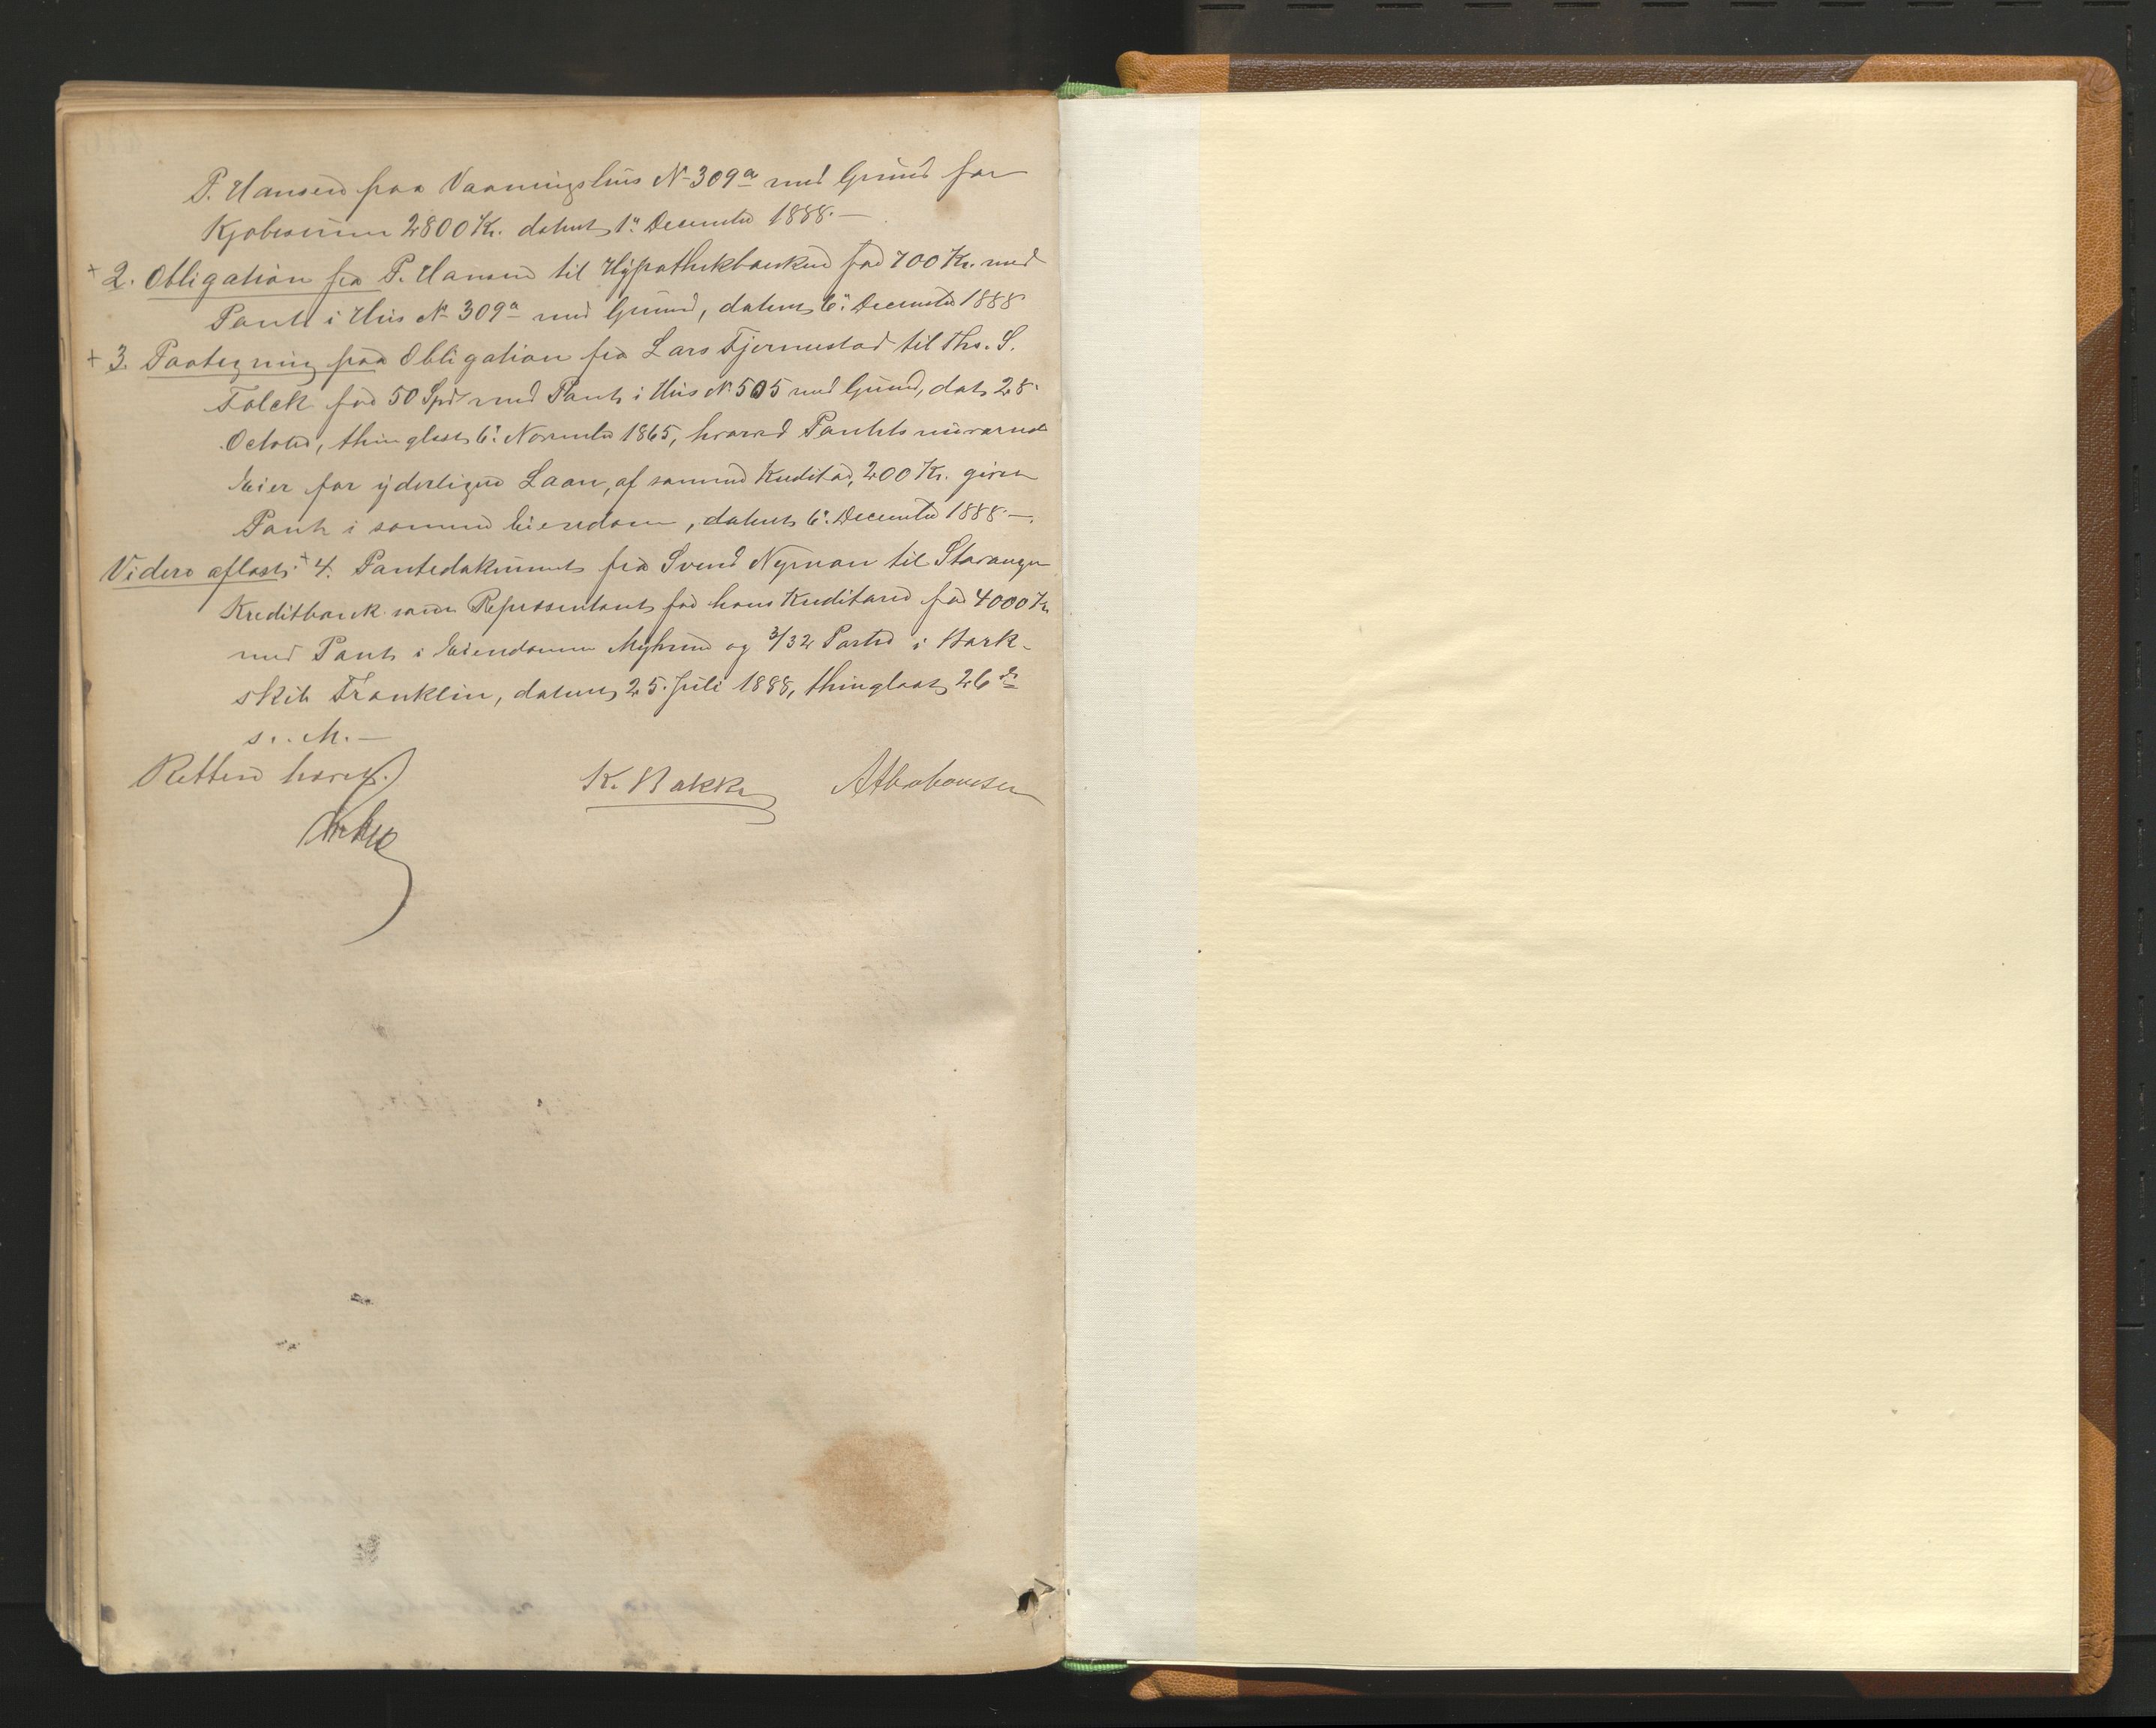 P. Hansen paa Vaaningshus No 309a med Grund for
Kjøbesum 2800 Kr. datert 1ste December 1888.—
+ 2. Obligation fra P. Hansen til Hypothekbanken for 700 Kr. med
Pant i Hus No 309a med Grund, datert 6te December 1888
+ 3. Paategning paa Obligation fra Lars Tjernestad til Ths. S.
Falck for 50 Spd med Pant i Hus No 505 med Grund, dat. 28
October, thinglæst 6te November 1865, hvorved Pantets nuværende
Eier for yderligere Laan, af samme Kreditor, 200 Kr. given
Pant i samme Eiendom, datert 6te December 1888.—
Videre aflæst: + 4. Pantedokument fra Svend Nyman til Stavanger
Kreditbank som Representant for hans Kreditorer for 4000 Kr
med Pant i Eiendommen Myhren og 3/32 Parter i Bark-
skib Franklin, datert 25. Juli 1888, thinglæst 26de
s. M.—
Retten hævet.
K. Bakke A Abrahamsen